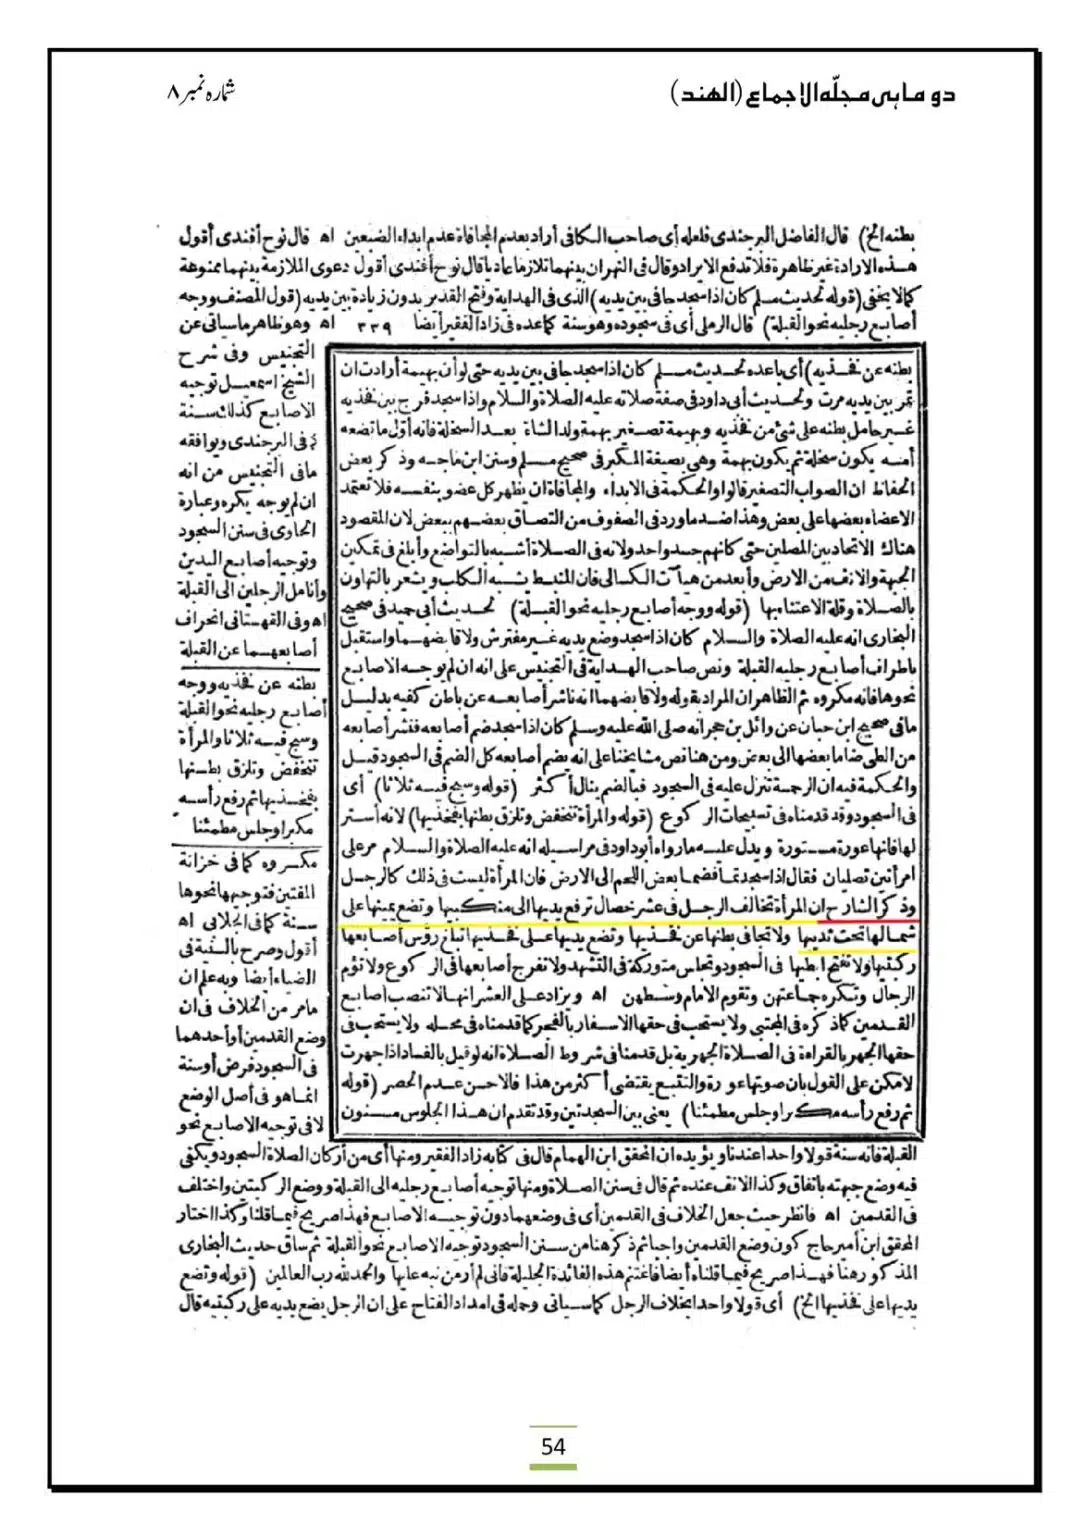 دو ماہی مجلّہ الاجماع (الهند)
شمارہ نمبر ٨
بطنه الخ) قال الفاضل البرجندى فلعله أى صاحب الكافى أراد بعدم المجافاة عدم ابداء الضبعين اه قال نوح أفندى أقول
هذه الارادة غير ظاهرة فلا تدفع الايراد وقال فى النهران بينهما تلازما عاديا قال نوح أفندى أقول دعوى الملازمة بينهما ممنوعة
كما لا يخفى (قوله لحديث مسلم كان اذا سجد جافى بين يديه) الذى فى الهداية وفتح القدير بدون زيادة بين يديه (قول المصنف ووجه
أصابع رجليه نحو القبلة) قال الرملى أى فى سجوده وهو سنة كما عده فى زاد الفقير أيضا ٣٣٩ اه وهو ظاهر ما سياتى عن
التجنيس وفى شرح
الشيخ اسمعيل توجيه
الاصابع كذلك سنة
فى البرجندى ويوافقه
مافى التجنيس من انه
ان لم يوجه يكره وعبارة
الحاوى فى سنن السجود
وتوجيه أصابع اليدين
وأنامل الرجلين الى القبلة
اه وفى القهستانى انحراف
أصابعهما عن القبلة
بطنه عن فخذيه ووجه
أصابع رجليه نحو القبلة
وسبح فيه ثلاثا والمرأة
تنخفض وتلزق بطنها
بفخذيها ثم رفع رأسه
مكبرا وجلس مطمئنا
مكروه كما فى خزانة
المفتين فتوجيهها نحوها
سنة كما فى الجلابى اه
أقول وصرح بالسنية فى
الضياء أيضا وبه علم ان
مامر من الخلاف فى ان
وضع القدمين أو أحدهما
فى السجود فرض أو سنة
انما هو فى أصل الوضع
لا فى توجيه الاصابع نحو
بطنه عن فخذيه) أى باعده لحديث مسلم كان اذا سجد جافى بين يديه حتى لو أن بهيمة أرادت ان
تمر بين يديه مرت ولحديث أبى داود فى صفة صلاته عليه الصلاة والسلام واذا سجد فرج بين فخذيه
غير حامل بطنه على شئ من فخذيه وبهيمة تصغير بهمة ولد الشاة بعد السخلة فانه أول ما تضعه
أمه يكون سخلة ثم يكون بهمة وهى بصيغة المكبر فى صحيح مسلم وسنن ابن ماجه وذكر بعض
الحفاظ ان الصواب التصغير قالوا والحكمة فى الابداء والمجافاة ان يظهر كل عضو بنفسه فلا تعتمد
الاعضاء بعضها على بعض وهذا ضد ما ورد فى الصفوف من التصاق بعضهم ببعض لان المقصود
هناك الاتحاد بين المصلين حتى كانهم جسد واحد ولانه فى الصلاة أشبه بالتواضع وأبلغ فى تمكين
الجبهة والانف من الارض وأبعد من هيآت الكسالى فان المنبسط يشبه الكلب ويشعر بالتهاون
بالصلاة وقلة الاعتناء بها (قوله ووجه أصابع رجليه نحو القبلة) لحديث أبى حميد فى صحيح
البخارى انه عليه الصلاة والسلام كان اذا سجد وضع يديه غير مفترش ولا قابضهما واستقبل
باطراف أصابع رجليه القبلة ونص صاحب الهداية فى التجنيس على انه ان لم يوجه الاصابع
نحوها فانه مكروه ثم الظاهر ان المراد بقوله ولا قابضهما انه ناشر أصابعه عن باطن كفيه بدليل
مافى صحيح ابن حبان عن وائل بن حجر انه صلى الله عليه وسلم كان اذا سجد ضم أصابعه فنشر أصابعه
من الطى ضاما بعضها الى بعض ومن هنا نص مشايخنا على انه يضم أصابعه كل الضم فى السجود قيل
والحكمة فيه ان الرحمة تنزل عليه فى السجود فبالضم ينال أكثر (قوله وسبح فيه ثلاثا) أى
فى السجود وقد قدمناه فى تسبيحات الركوع (قوله والمرأة تنخفض وتلزق بطنها بفخذيها) لانه أستر
لها فانها عورة مستورة ويدل عليه ما رواه أبو داود فى مراسيله انه عليه الصلاة والسلام مر على
امرأتين تصليان فقال اذا سجدتما فضما بعض اللحم الى الارض فان المرأة ليست فى ذلك كالرجل
وذكر الشارح ان المرأة تخالف الرجل فى عشر خصال ترفع يديها الى منكبيها وتضع يمينها على
شمالها تحت ثدييها ولا تجافى بطنها عن فخذيها وتضع يديها على فخذيها تبلغ رؤس أصابعها
ركبتيها ولا تفتح ابطيها فى السجود وتجلس متوركة فى التشهد ولا تفرج أصابعها فى الركوع ولا تؤم
الرجال وتكره جماعتهن وتقوم الامام وسطهن اه ويزاد على العشر انها لا تنصب أصابع
القدمين كما ذكره فى المجتبى ولا يستحب فى حقها الاسفار بالفجر كما قدمناه فى محله ولا يستحب فى
حقها الجهر بالقراءة فى الصلاة الجهرية بل قدمنا فى شروط الصلاة انه لو قيل بالفساد اذا جهرت
لامكن على القول بان صوتها عورة والتتبع يقتضى أكثر من هذا فالاحسن عدم الحصر (قوله
ثم رفع رأسه مكبرا وجلس مطمئنا) يعنى بين السجدتين وقد تقدم ان هذا الجلوس مسنون
القبلة فانه سنة قولا واحدا عندنا ويؤيده ان المحقق ابن الهمام قال فى كتابه زاد الفقير ومنها أى من أركان الصلاة السجود ويكفى
فيه وضع جبهته باتفاق وكذا الانف عنده ثم قال فى سنن الصلاة ومنها توجيه أصابع رجليه الى القبلة ووضع الركبتين واختلف
فى القدمين اه فانظر حيث جعل الخلاف فى القدمين أى فى وضعهما دون توجيه الاصابع فهذا صريح فيما قلنا وكذا اختار
المحقق ابن أمير حاج كون وضع القدمين واجبا ثم ذكر هنا من سنن السجود توجيه الاصابع نحو القبلة ثم ساق حديث البخارى
المذكور هنا فهذا صريح فيما قلناه أيضا فاغتنم هذه الفائدة الجليلة فانى لم أر من نبه عليها والحمد لله رب العالمين (قوله وتضع
يديها على فخذيها الخ) أى قولا واحدا بخلاف الرجل كما سياتى وحمله فى امداد الفتاح على ان الرجل يضع يديه على ركبتيه قال
54